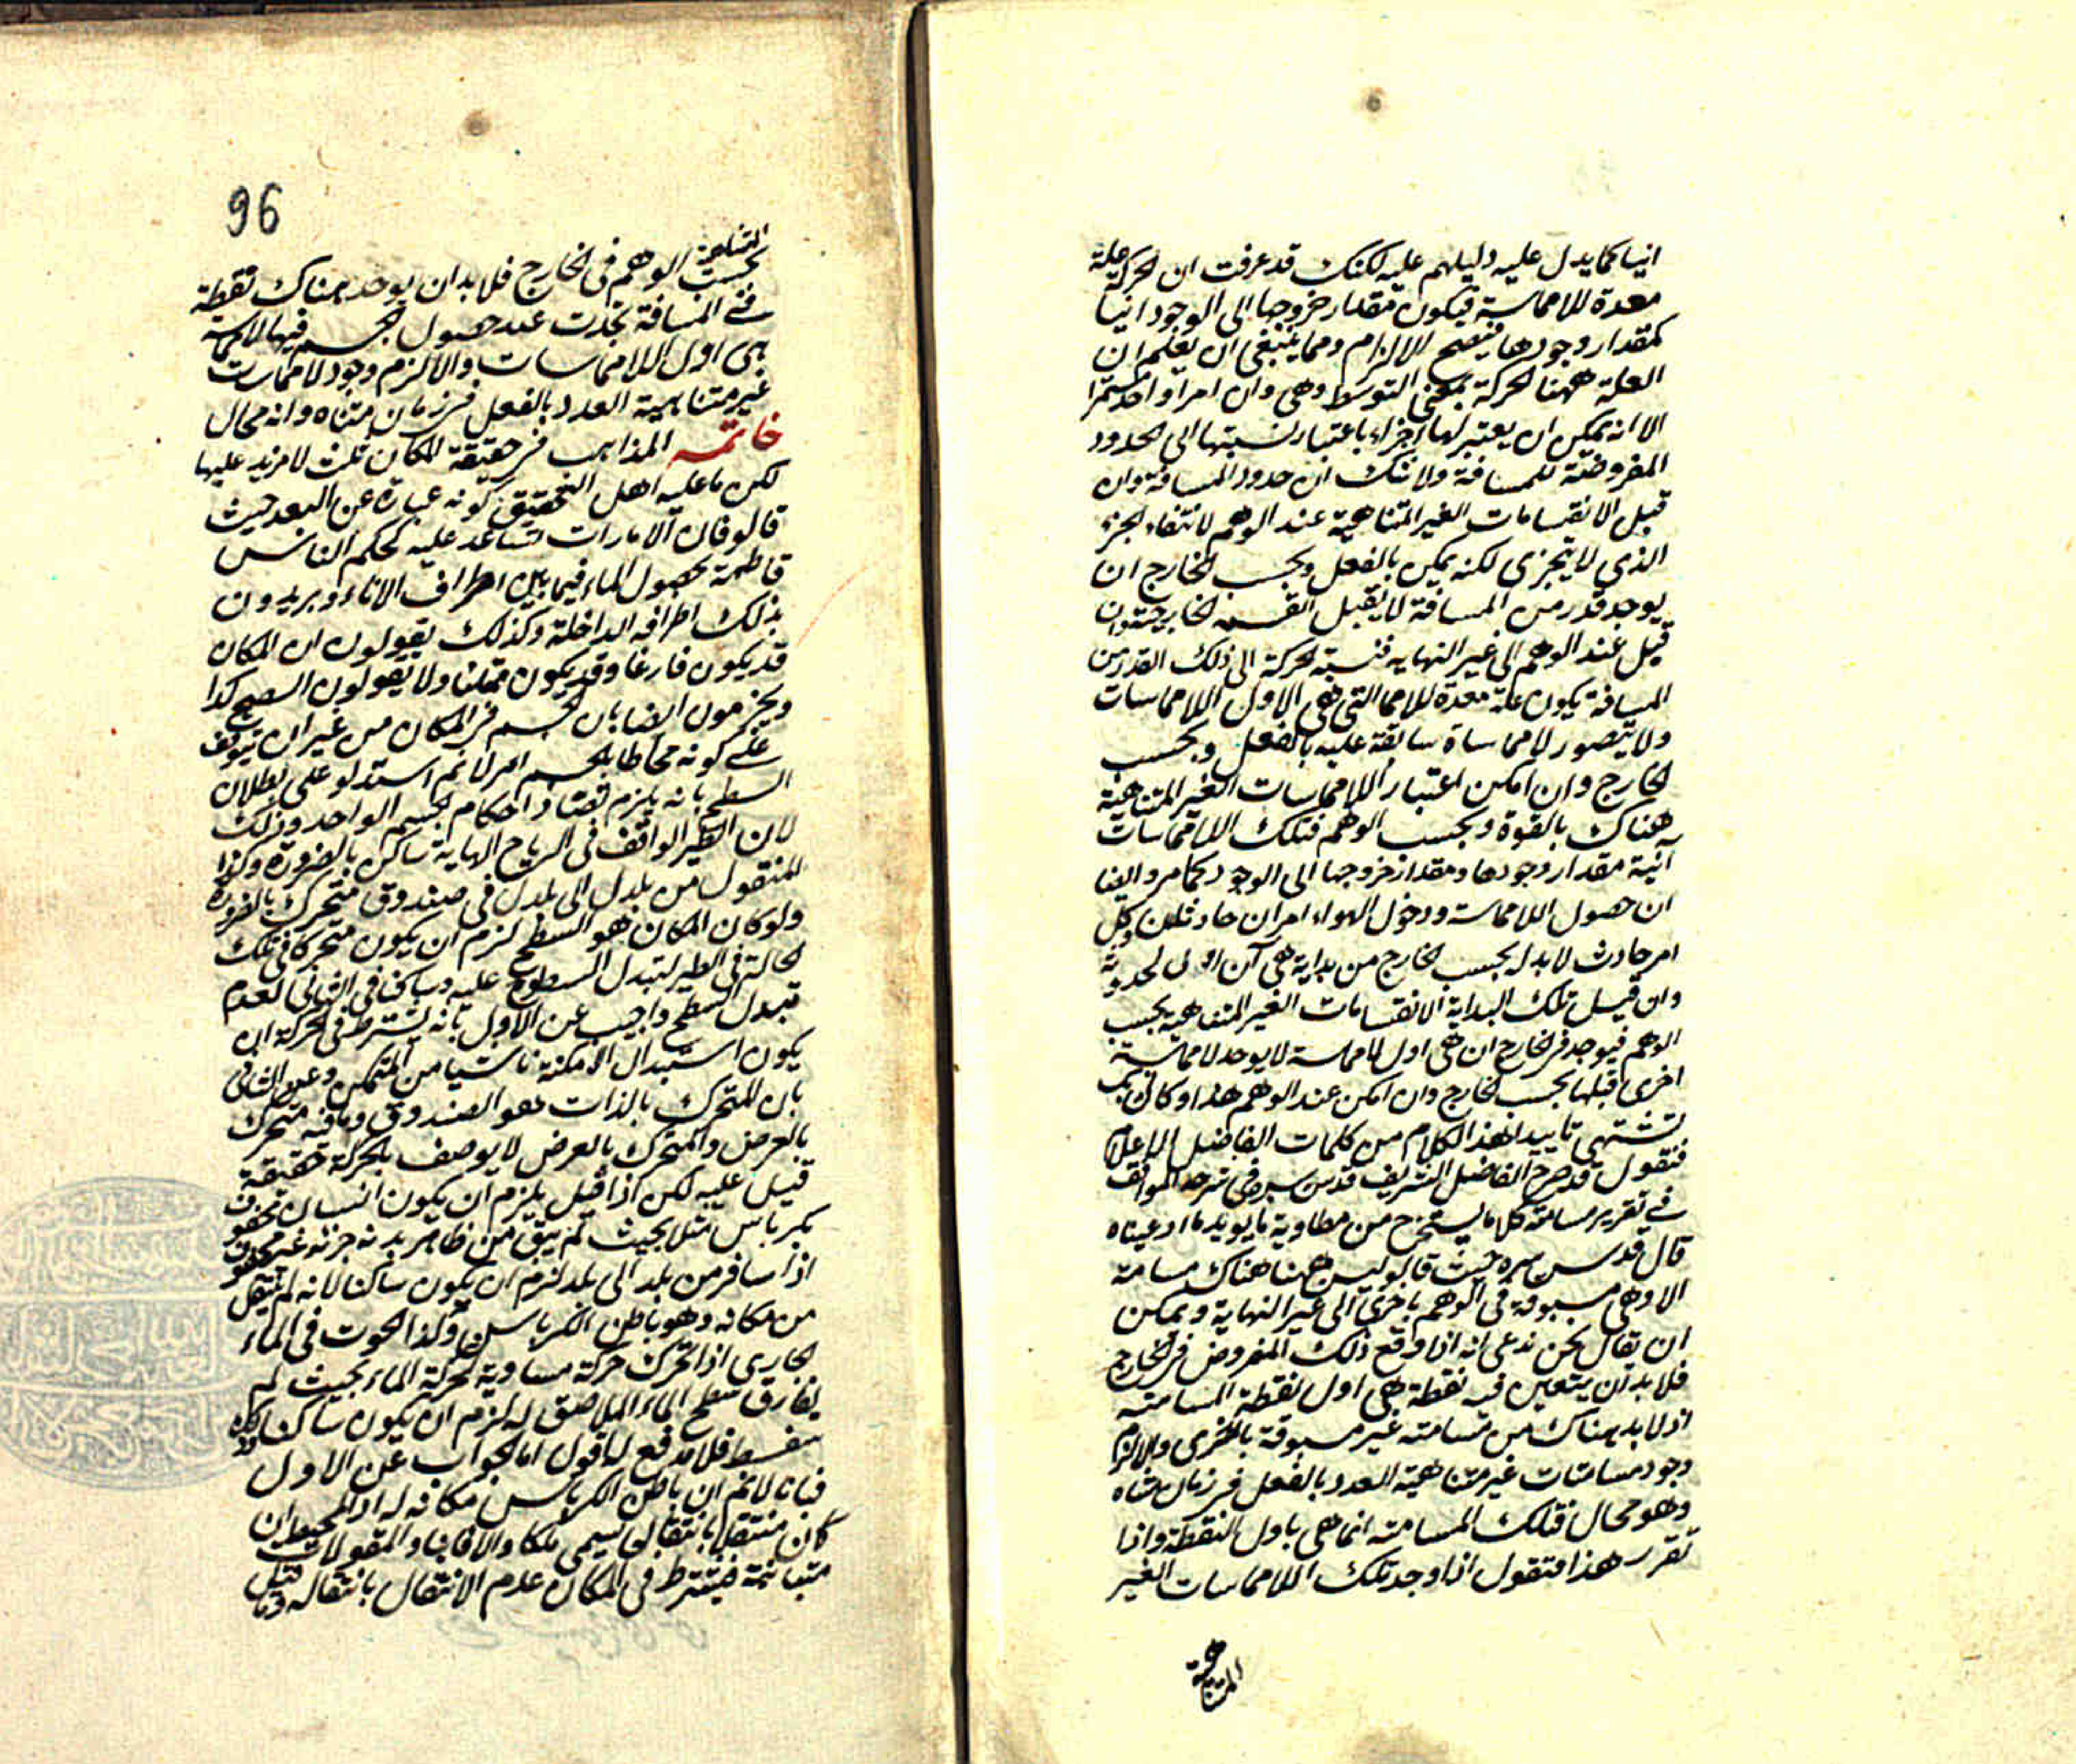 انيا كما يدل عليه دليلهم عليه لكنك قد عرفت ان الحركة علة
معدة للامماسة فيكون مقدار خروجها الى الوجود انيا
كمقدار وجودها فيصح الالزام ومما ينبغي ان يعلم ان
العلة ههنا الحركة بمعنى التوسط وهي وان امرا واحدا مستمرا
الا انه يمكن ان يعتبر لها اجزاء باعتبار نسبتها الى الحدود
المفروضة للمسافة ولا شك ان حدود المسافة وان
قبل الانقسامات الغير المتناهية عند الوهم لانتفاء الجزء
الذي لا يتجزى لكنه يمكن بالفعل وبحسب الخارج ان
يوجد قدر من المسافة لا يقبل القسمة الخارجية وان
قبل عند الوهم الى غير النهاية فنسبة الحركة الى ذلك القدر من
المسافة يكون علة معدة للامما التي هي الاول اللامماسات
ولا يتصور لامماساة سابقة عليه بالفعل وبحسب
الخارج وان امكن اعتبار اللامماسات الغير المتناهية
هناك بالقوة وبحسب الوهم فتلك اللامماسات
انية مقدار وجودها ومقدار خروجها الى الوجود كما مر وايضا
ان حصول اللامماسة ودخول الهواء امران حادثان وكل
امر حادث لا بد له بحسب الخارج من بداية هي آن اول لحدوثه
وان قبل تلك البداية الانقسامات الغير المتناهية بحسب
الوهم فيوجد في الخارج ان هي اول لاممماسة لا يوجد لامماسة
اخرى قبلها بحسب الخارج وان امكن عند الوهم هذا وكانك
تشتهي تاييد هذا الكلام من كلمات الفاضل الاعلام
فنقول قد صرح الفاضل الشريف قدس سره في شرحه المواقف
في تقرير مسامتة كلاما يستخرج من مطاويه ما يويد ما ادعيناه
قال قدس سره حيث قالو ليس ههنا هناك مسامتة
الا وهي مسبوقة في الوهم باخرى الى غير النهاية ويمكن
ان يقال نحن ندعي انه اذا وقع ذلك المفروض في الخارج
فلا بد ان يتعين فيه نقطة هي اول نقطة المسامته
اذ لا بد هناك من مسامته غير مسبوقة باخرى والا لزم
وجود مسامتات غير متناهية العدد بالفعل في زمان متناه
وهو محال فتلك المسامته انما هي باول النقطة واذا
تقرر هذا فنقول اذا وجد تلك اللامماسات الغير
المتناهية
96
المتناهية
بحسب الوهم في الخارج فلا بد ان يوجد هناك نقطة
في المسافة تحدث عند حصول الجسم فيها لامماسة
هي اول اللامماسات والا لزم وجود لامماسات
غير متناهية العدد بالفعل في زمان متناه وانه محال
خاتمه المذاهب في حقيقة المكان ثلث لا مزيد عليها
لكن ما عليه اهل التحقيق كونه عبارة عن البعد حيث
قالو فان الامارات تساعد عليه كحكم الناس
قاطبة بحصول الماء فيما بين اطراف الاناء ويريدون
بذلك اطرافه الداخلة وكذلك يقولون ان المكان
قد يكون فارغا وقد يكون ممتلئا ولا يقولون السطح كذا
ويجزمون ايضا بان الجسم في المكان من غير ان يتوقف
على كونه محاطا بالجسم امر لا ثم استدلو على بطلان
السطح بانه يلزم تضاد احكام الجسم الواحد وذلك
لان الطير الواقف في الرياح الهابة ساكن بالضرورة وكذا
المنقول من بلد الى بلد في صندوق متحرك بالضرورة
ولو كان المكان هو السطح لزم ان يكون متحركا في تلك
الحالة في الطير لتبدل السطوح عليه وساكنا في الثاني لعدم
تبدل السطح واجيب عن الاول بانه يشترط في الحركة ان
يكون استبدال الامكنة ناشيا من المتمكن وعن الثاني
بان المتحرك بالذات هو الصندوق وما فيه متحرك
بالعرض والمتحرك بالعرض لا يوصف بالحركة حقيقة
قيل عليه لكن اذا قيل يلزم ان يكون انسان محفوف
بكرباس مثلا بحيث لم يبق من ظاهر بدنه جزء غير محفوف
اذا سافر من بلد الى بلد لزم ان يكون ساكنا لانه لم ينتقل
من مكانه وهو باطن الكرباس وكذا الحوت في الماء
الجاري اذا تحرك حركة مساوية لحركة الماء بحيث لم
يفارق سطح الماء الملاصق له لزم ان يكون ساكنا
سفسط فلا مدفع له اقول اما الجواب عن الاول
فبانا لا نم ان باطن الكرباس مكانه له اذ المحيط ان
كان منتقلا بانتقاله يسمى ملكا والا فاينا والمقولات
متباينة فيشترط في المكان عدم الانتقال بانتقاله